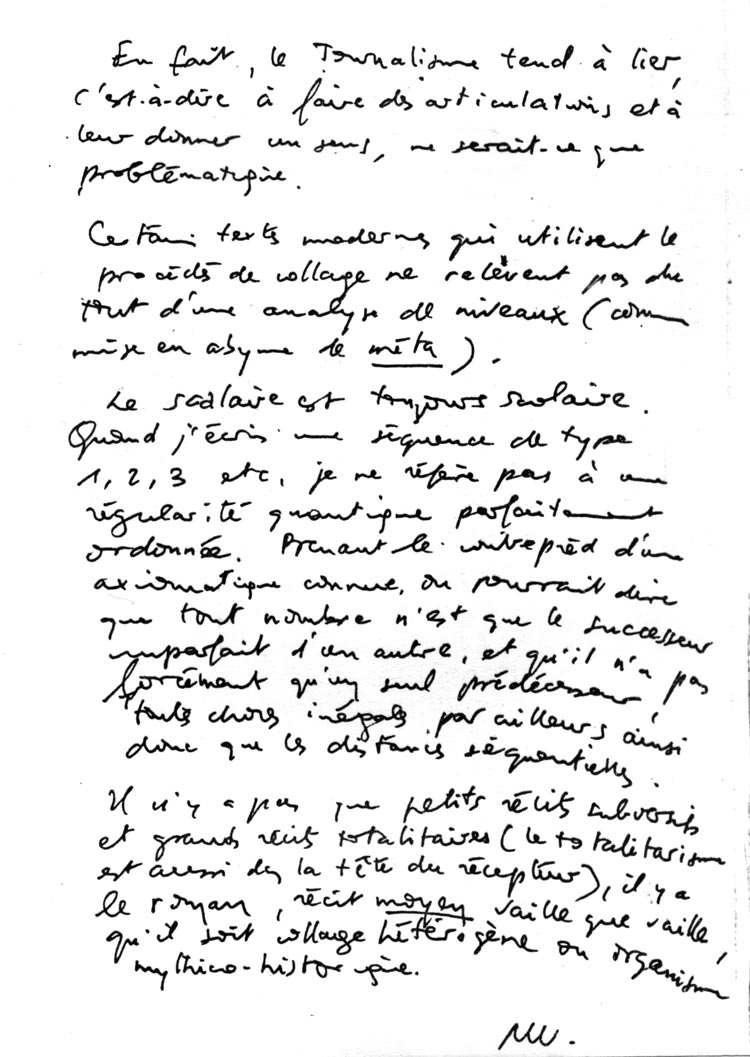 En fait, le Journalisme tend à lier,
c'est-à-dire à faire des articulations et à
leur donner un sens, ne serait-ce que
problématique.
Certains textes modernes qui utilisent le
procédé de collage ne relèvent pas du
tout d'une analyse de niveaux (comme
mise en abyme le méta).
Le scalaire est toujours scolaire.
Quand j'écris une séquence de type
1, 2, 3 etc, je ne réfère pas à une
régularité quantique parfaitement
ordonnée. Prenant le contrepied d'une
axiomatique connue, on pourrait dire
que tout nombre n'est que le successeur
imparfait d'un autre, et qu'il n'a pas
forcément qu'un seul prédécesseur,
toutes choses inégales par ailleurs ainsi
donc que les distances séquentielles.
Il n'y a pas que petits récits subversifs
et grands récits totalitaires (le totalitarisme
est aussi ds la tête du récepteur), il y a
le roman, récit moyen vaille que vaille,
qu'il soit collage hétérogène ou organisme
mythico-historique.